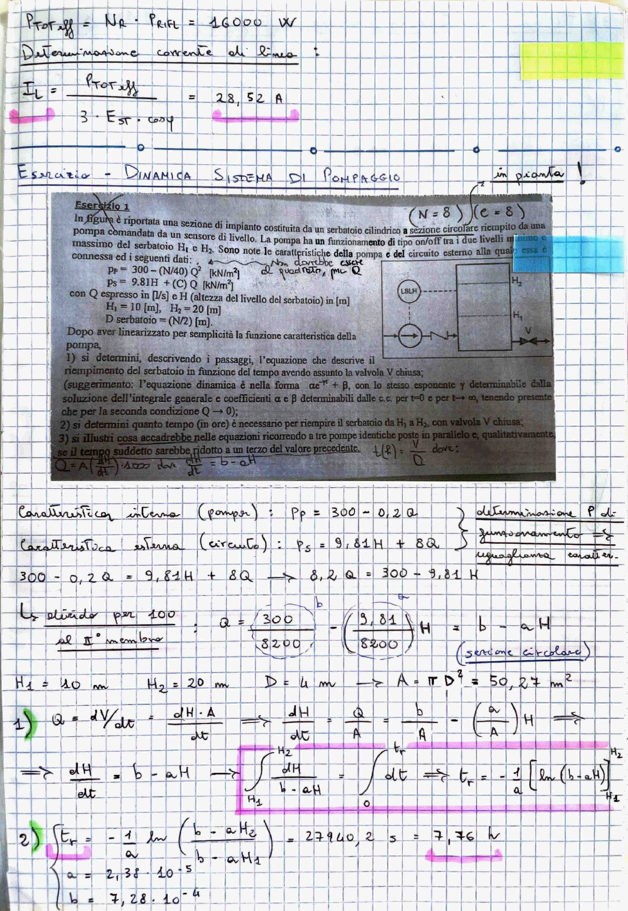 P_TOT eff = N_R · P_RIFL = 16000 W
Determinazione corrente di linea :
I_L = P_TOT eff / 3 · E_ST · cosφ = 28,52 A
Esercizio - DINAMICA SISTEMA DI POMPAGGIO
in pianta !
Esercizio 1 (N = 8) (C = 8)
In figura è riportata una sezione di impianto costituita da un serbatoio cilindrico a sezione circolare riempito da una
pompa comandata da un sensore di livello. La pompa ha un funzionamento di tipo on/off tra i due livelli minimo e
massimo del serbatoio H₁ e H₂. Sono note le caratteristiche della pompa e del circuito esterno alla quale essa è
connessa ed i seguenti dati: Non dovrebbe essere
p_P = 300 – (N/40) Q² [kN/m²] al quadrato, ma Q
p_S = 9.81H + (C) Q [kN/m²]
con Q espresso in [l/s] e H (altezza del livello del serbatoio) in [m]
H₁ = 10 [m], H₂ = 20 [m]
D serbatoio = (N/2) [m].
LSLH
H₂
H₁
V
Dopo aver linearizzato per semplicità la funzione caratteristica della
pompa,
1) si determini, descrivendo i passaggi, l'equazione che descrive il
riempimento del serbatoio in funzione del tempo avendo assunto la valvola V chiusa;
(suggerimento: l'equazione dinamica è nella forma αe^-γt + β, con lo stesso esponente γ determinabile dalla
soluzione dell'integrale generale e coefficienti α e β determinabili dalle c.c. per t=0 e per t→ ∞, tenendo presente
che per la seconda condizione Q → 0);
2) si determini quanto tempo (in ore) è necessario per riempire il serbatoio da H₁ a H₂, con valvola V chiusa;
3) si illustri cosa accadrebbe nelle equazioni ricorrendo a tre pompe identiche poste in parallelo e, qualitativamente,
se il tempo suddetto sarebbe ridotto a un terzo del valore precedente. t(R) = V/Q dove:
Q = A (dH/dt) · 1000 dove dH/dt = b - aH
Caratteristica interna (pompa) : P_P = 300 - 0,2 Q
Caratteristica esterna (circuito) : P_S = 9,81 H + 8Q
determinazione P di
funzionamento =>
uguaglianza caratter.
300 - 0,2 Q = 9,81 H + 8Q → 8,2 Q = 300 - 9,81 H
↳ divido per 100
al II° membro : Q = 300/8200 - (9,81/8200) H = b - aH
b a
(sezione circolare)
H1 = 10 m H2 = 20 m D = 4 m → A = π D² = 50,27 m²
1) Q = dV/dt = dH · A/dt => dH/dt = Q/A = b/A - (a/A) H =>
=> dH/dt = b - aH → ∫_H1^H2 dH/(b - aH) = ∫_0^tr dt => t_r = - 1/a [ln (b-aH)]_H1^H2
2) t_r = - 1/a ln ( (b - aH2)/(b - aH1) ) = 27940,2 s = 7,76 h
a = 2,38 · 10⁻⁵
b = 7,28 · 10⁻⁴